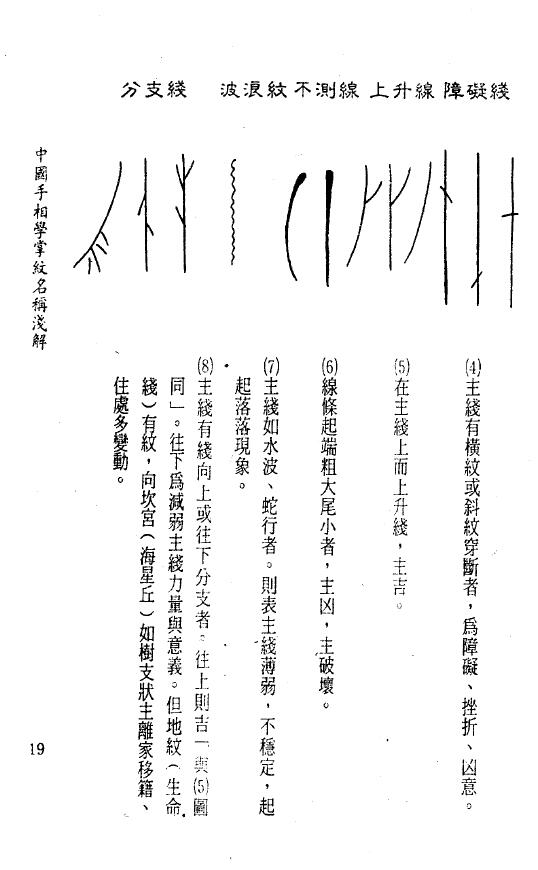 障礙綫
上升線
不測線
波浪紋
分支綫
⑷主綫有橫紋或斜紋穿斷者，爲障礙、挫折、凶意。
⑸在主綫上而上升綫，主吉。
⑹線條起端粗大尾小者，主凶，主破壞。
⑺主綫如水波、蛇行者。則表主綫薄弱，不穩定，起
起落落現象。
⑻主綫有綫向上或往下分支者。往上則吉「與⑸圖
同」。往下爲減弱主綫力量與意義。但地紋（生命
綫）有紋，向坎宮（海星丘）如樹支狀主離家移籍、
住處多變動。
中國手相學掌紋名稱淺解
19